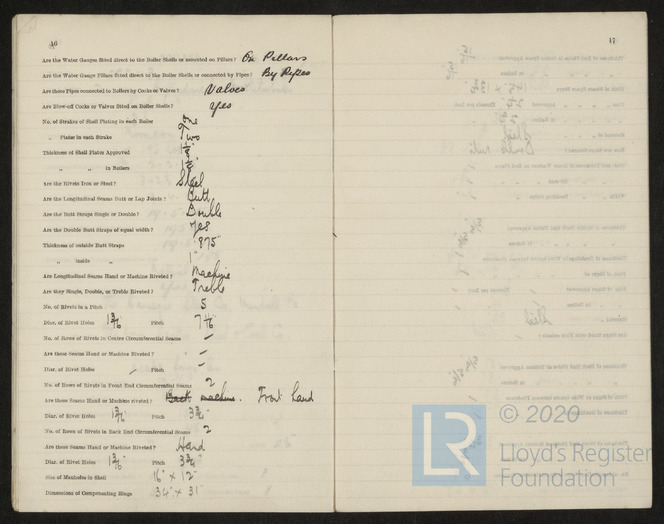 46
Are the Water Gauges fitted direct to the Boiler Shells or mounted on Pillars? On Pillars
Are the Water Gauge Pillars fitted direct to the Boiler Shells or connected by Pipes? By Pipes
Are these Pipes connected to Boilers by Cocks or Valves? Valves
Are Blow-off Cocks or Valves fitted on Boiler Shells? Yes
No. of Strakes of Shell Plating in each Boiler One
„ Plates in each Strake Two
Thickness of Shell Plates Approved
„ „ in Boilers
Are the Rivets Iron or Steel? Steel
Are the Longitudinal Seams Butt or Lap Joints? Butt
Are the Butt Straps Single or Double? Double
Are the Double Butt Straps of equal width? Yes
Thickness of outside Butt Straps .875"
„ inside „ 1"
Are Longitudinal Seams Hand or Machine Riveted? Machine
Are they Single, Double, or Treble Riveted? Treble
No. of Rivets in a Pitch 5
Diar. of Rivet Holes 1 3/16 Pitch
No. of Rows of Rivets in Centre Circumferential Seams –
Are these Seams Hand or Machine Riveted? –
Diar. of Rivet Holes – Pitch –
No. of Rows of Rivets in Front End Circumferential Seams 2
Are these Seams Hand or Machine riveted? Back machine. Front hand
Diar. of Rivet Holes 1 3/16 Pitch 3 3/4"
No. of Rows of Rivets in Back End Circumferential Seams 2
Are these Seams Hand or Machine Riveted? Hand
Diar. of Rivet Holes 1 3/16" Pitch 3 3/4"
Size of Manholes in Shell 16" × 12"
Dimensions of Compensating Rings 34" × 31"
47
© 2020
LR Lloyd's Register
Foundation